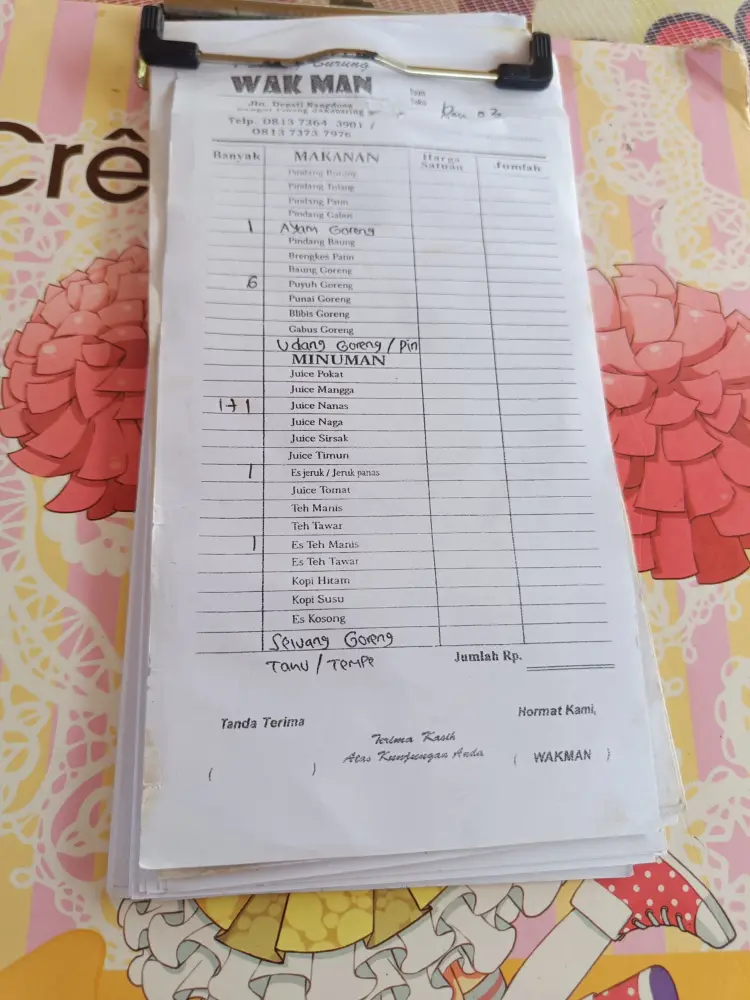 Crê
Burung
WAK MAN
Jln. Depati
Telp. 0813 7364 3901 /
0813 7373 7976
Banyak MAKANAN Harga Satuan Jumlah
Pindang Tulang
Pindang Patin
Pindang Gabus
1 Ayam Goreng
Pindang Baung
Brengkes Patin
Baung Goreng
6 Puyuh Goreng
Punai Goreng
Blibis Goreng
Gabus Goreng
Udang Goreng / Pin
MINUMAN
Juice Pokat
Juice Mangga
1+1 Juice Nanas
Juice Naga
Juice Sirsak
Juice Timun
1 Es jeruk / Jeruk panas
Juice Tomat
Teh Manis
Teh Tawar
1 Es Teh Manis
Es Teh Tawar
Kopi Hitam
Kopi Susu
Es Kosong
Seluang Goreng
Tahu / Tempe
Jumlah Rp.
Tanda Terima Hormat Kami,
Terima Kasih
Atas Kunjungan Anda
( ) ( WAKMAN )